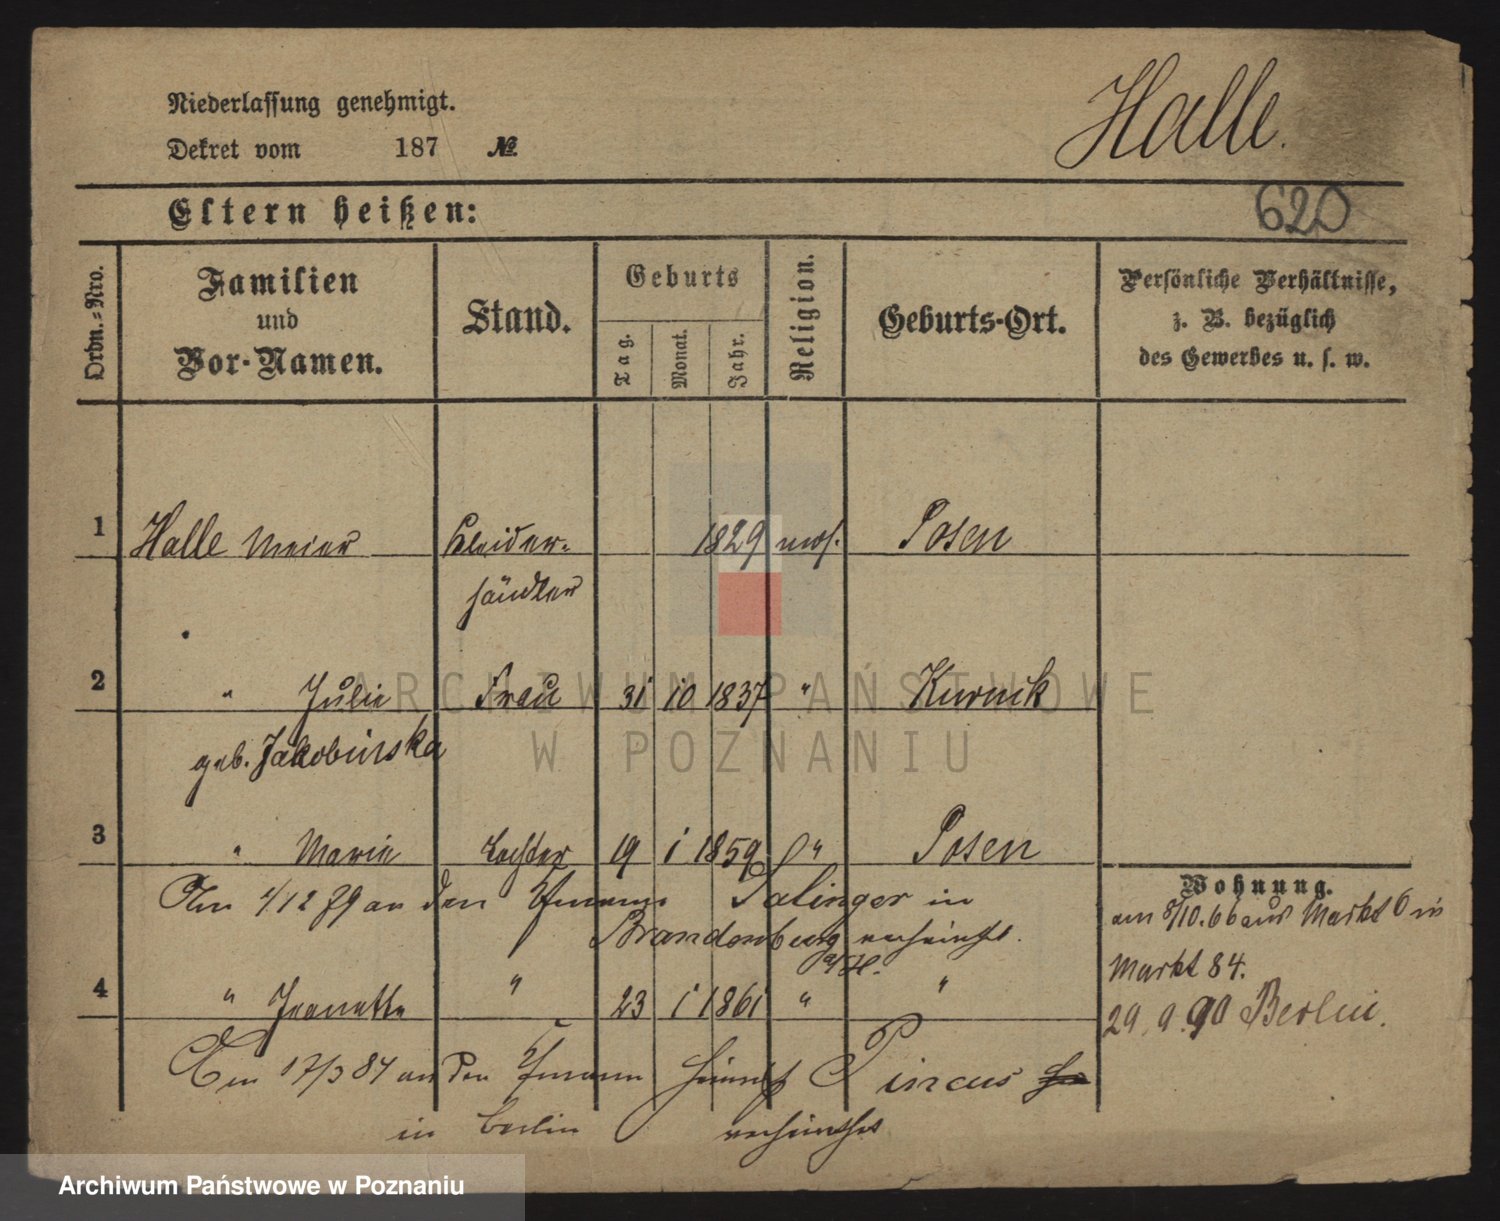 Halle.
Niederlassung genehmigt.
Dekret vom 187 №
620
Eltern heißen:
Ordn.-Nro.
Familien
und
Vor-Namen.
Stand.
Geburts
Tag.
Monat.
Jahr.
Religion.
Geburts-Ort.
Persönliche Verhältnisse,
z. B. bezüglich
des Gewerbes u. s. w.
1 Halle Meier Kleider- 1829 mos. Posen
händler
2 " Julie Frau 31 10 1837 " Kurnik
geb. Jakobinska
3 " Marie Tochter 19 1 1859 " Posen
Am 4/12 79 an den Kfmann Salinger in
Brandenburg verheirathet.
a/H.
4 " Jeanette " 23 1 1861 " "
Am 17/3 84 an den Kfmann Heinrich Pincus
in Berlin verheirathet
Wohnung.
am 8/10.66 aus Markt 6 in
Markt 84.
29.9.90 Berlin.
ARCHIWUM PAŃSTWOWE
W POZNANIU
Archiwum Państwowe w Poznaniu